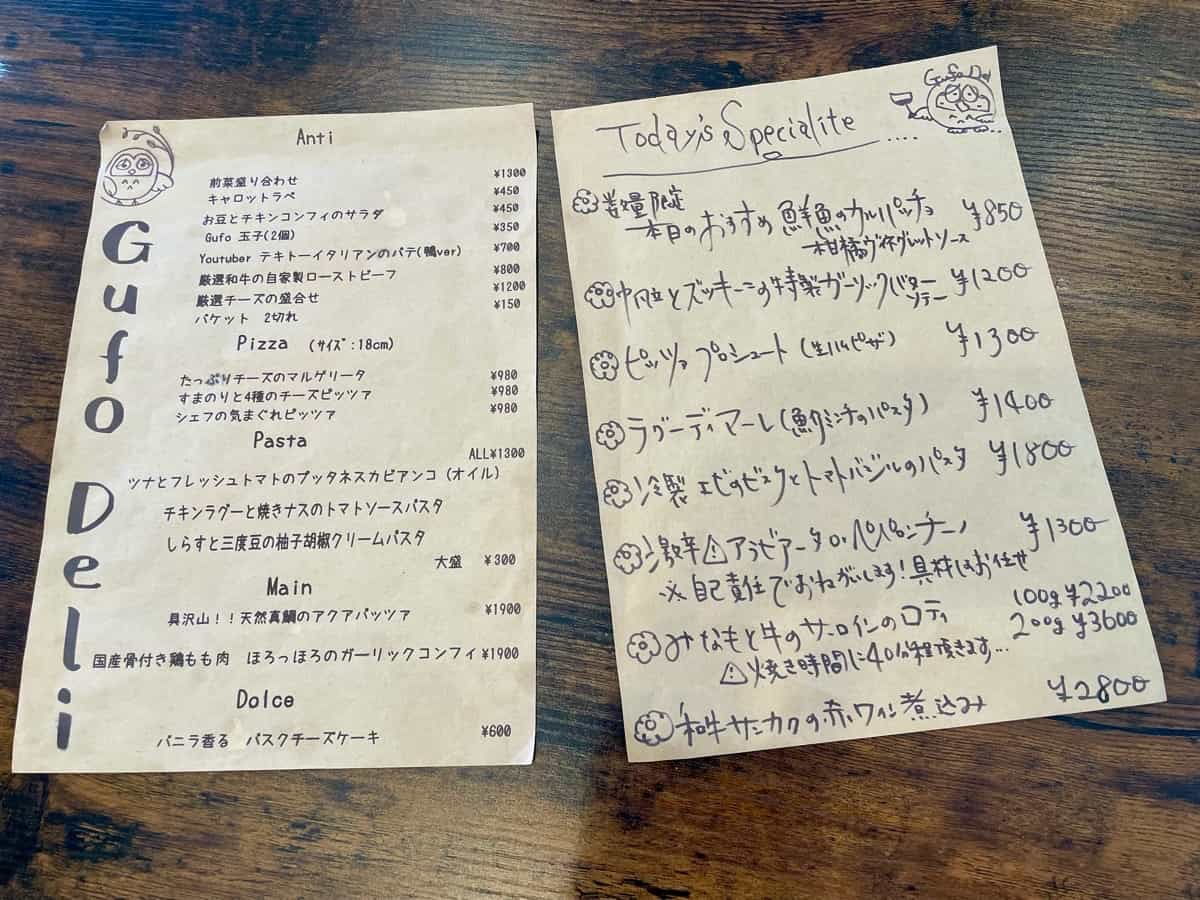 Gufo Deli
Anti
前菜盛り合わせ ¥1300
キャロットラペ ¥450
お豆とチキンコンフィのサラダ ¥450
Gufo 玉子(2個) ¥350
Youtuber テキトーイタリアンのパテ(鴨ver) ¥700
厳選和牛の自家製ローストビーフ ¥800
厳選チーズの盛合せ ¥1200
バケット 2切れ ¥150
Pizza (サイズ:18cm)
たっぷりチーズのマルゲリータ ¥980
すまのりと4種のチーズピッツァ ¥980
シェフの気まぐれピッツァ ¥980
Pasta
ALL¥1300
ツナとフレッシュトマトのプッタネスカビアンコ (オイル)
チキンラグーと焼きナスのトマトソースパスタ
しらすと三度豆の柚子胡椒クリームパスタ
大盛 ¥300
Main
具沢山!!天然真鯛のアクアパッツァ ¥1900
国産骨付き鶏もも肉 ほろっほろのガーリックコンフィ ¥1900
Dolce
バニラ香る バスクチーズケーキ ¥600
Gufo Deli
Today's Specialite ....
数量限定
本日のおすすめ 鮮魚のカルパッチョ ¥850
柑橘ヴィネグレットソース
帆立とズッキーニの特製ガーリックバターソテー ¥1200
ピッツァ プロシュート (生ハムピザ) ¥1300
ラグーディマーレ (魚介ミンチのパスタ) ¥1400
冷製 エビのビスクとトマトバジルのパスタ ¥1800
激辛⚠アラビアータ or ペペロンチーノ ¥1300
※自己責任でおねがいします!具材はお任せ
みなもと牛のサーロインのロティ 100g ¥2200
200g ¥3600
⚠焼き時間に40分程頂きます...
和牛サンカクの赤ワイン煮込み ¥2800